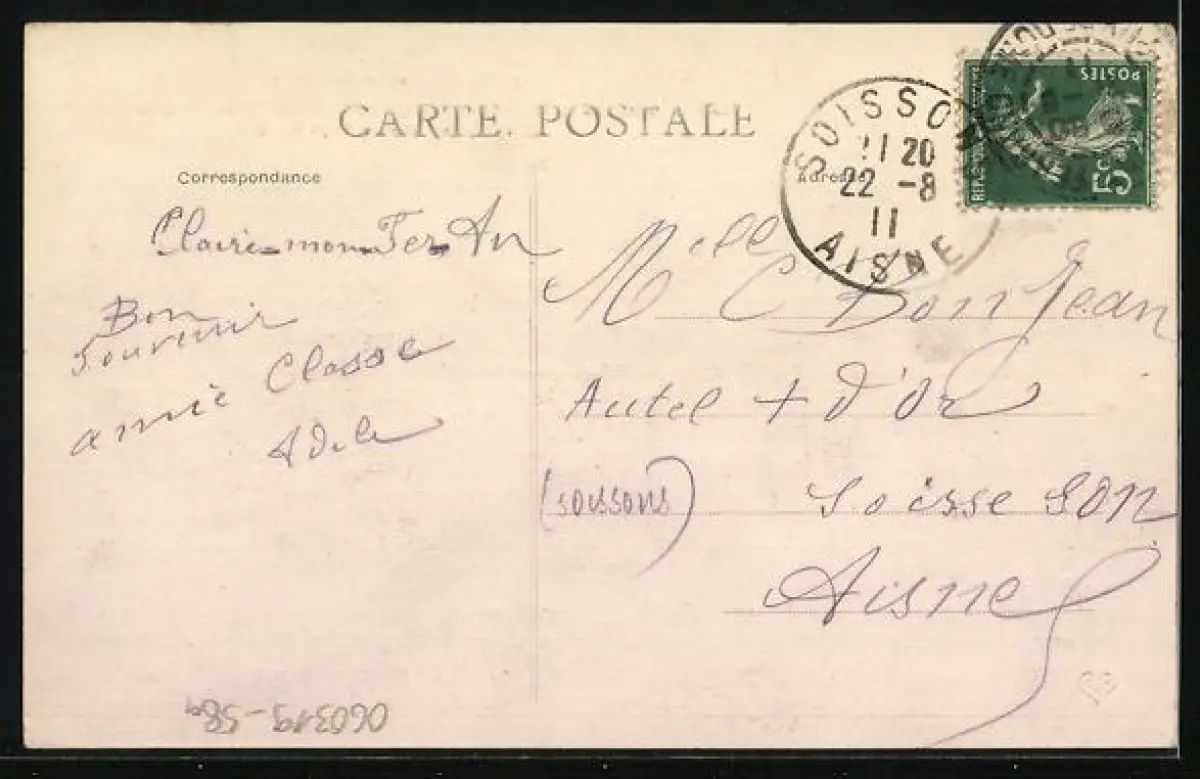 CARTE POSTALE
Correspondance
Adresse
SOISSONS
11 20
22 -8
11
AISNE
POSTES
5c
Claire-mon-Fer-An
Bon
souvenir
amié Classe
Adele
Mell C Bonjean
Autel + d'Or
(soissons) Soisse son
Aisne
060319-589